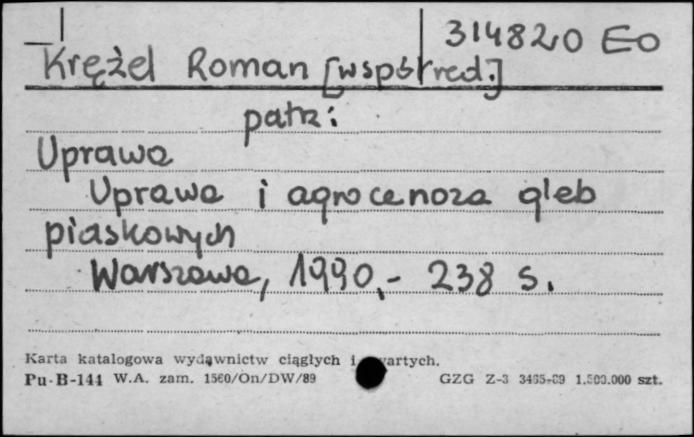 314820 Eo
Krężel Roman [współred.]
patrz:
Uprawa
Uprawa i agrocenoza gleb
piaskowych
Warszawa, 1990,- 238 s.
Karta katalogowa wydawnictw ciągłych i
Pu-B-144 W.A. zam. 1560/On/DW/89 GZG Z-3 1.500.000 szt.